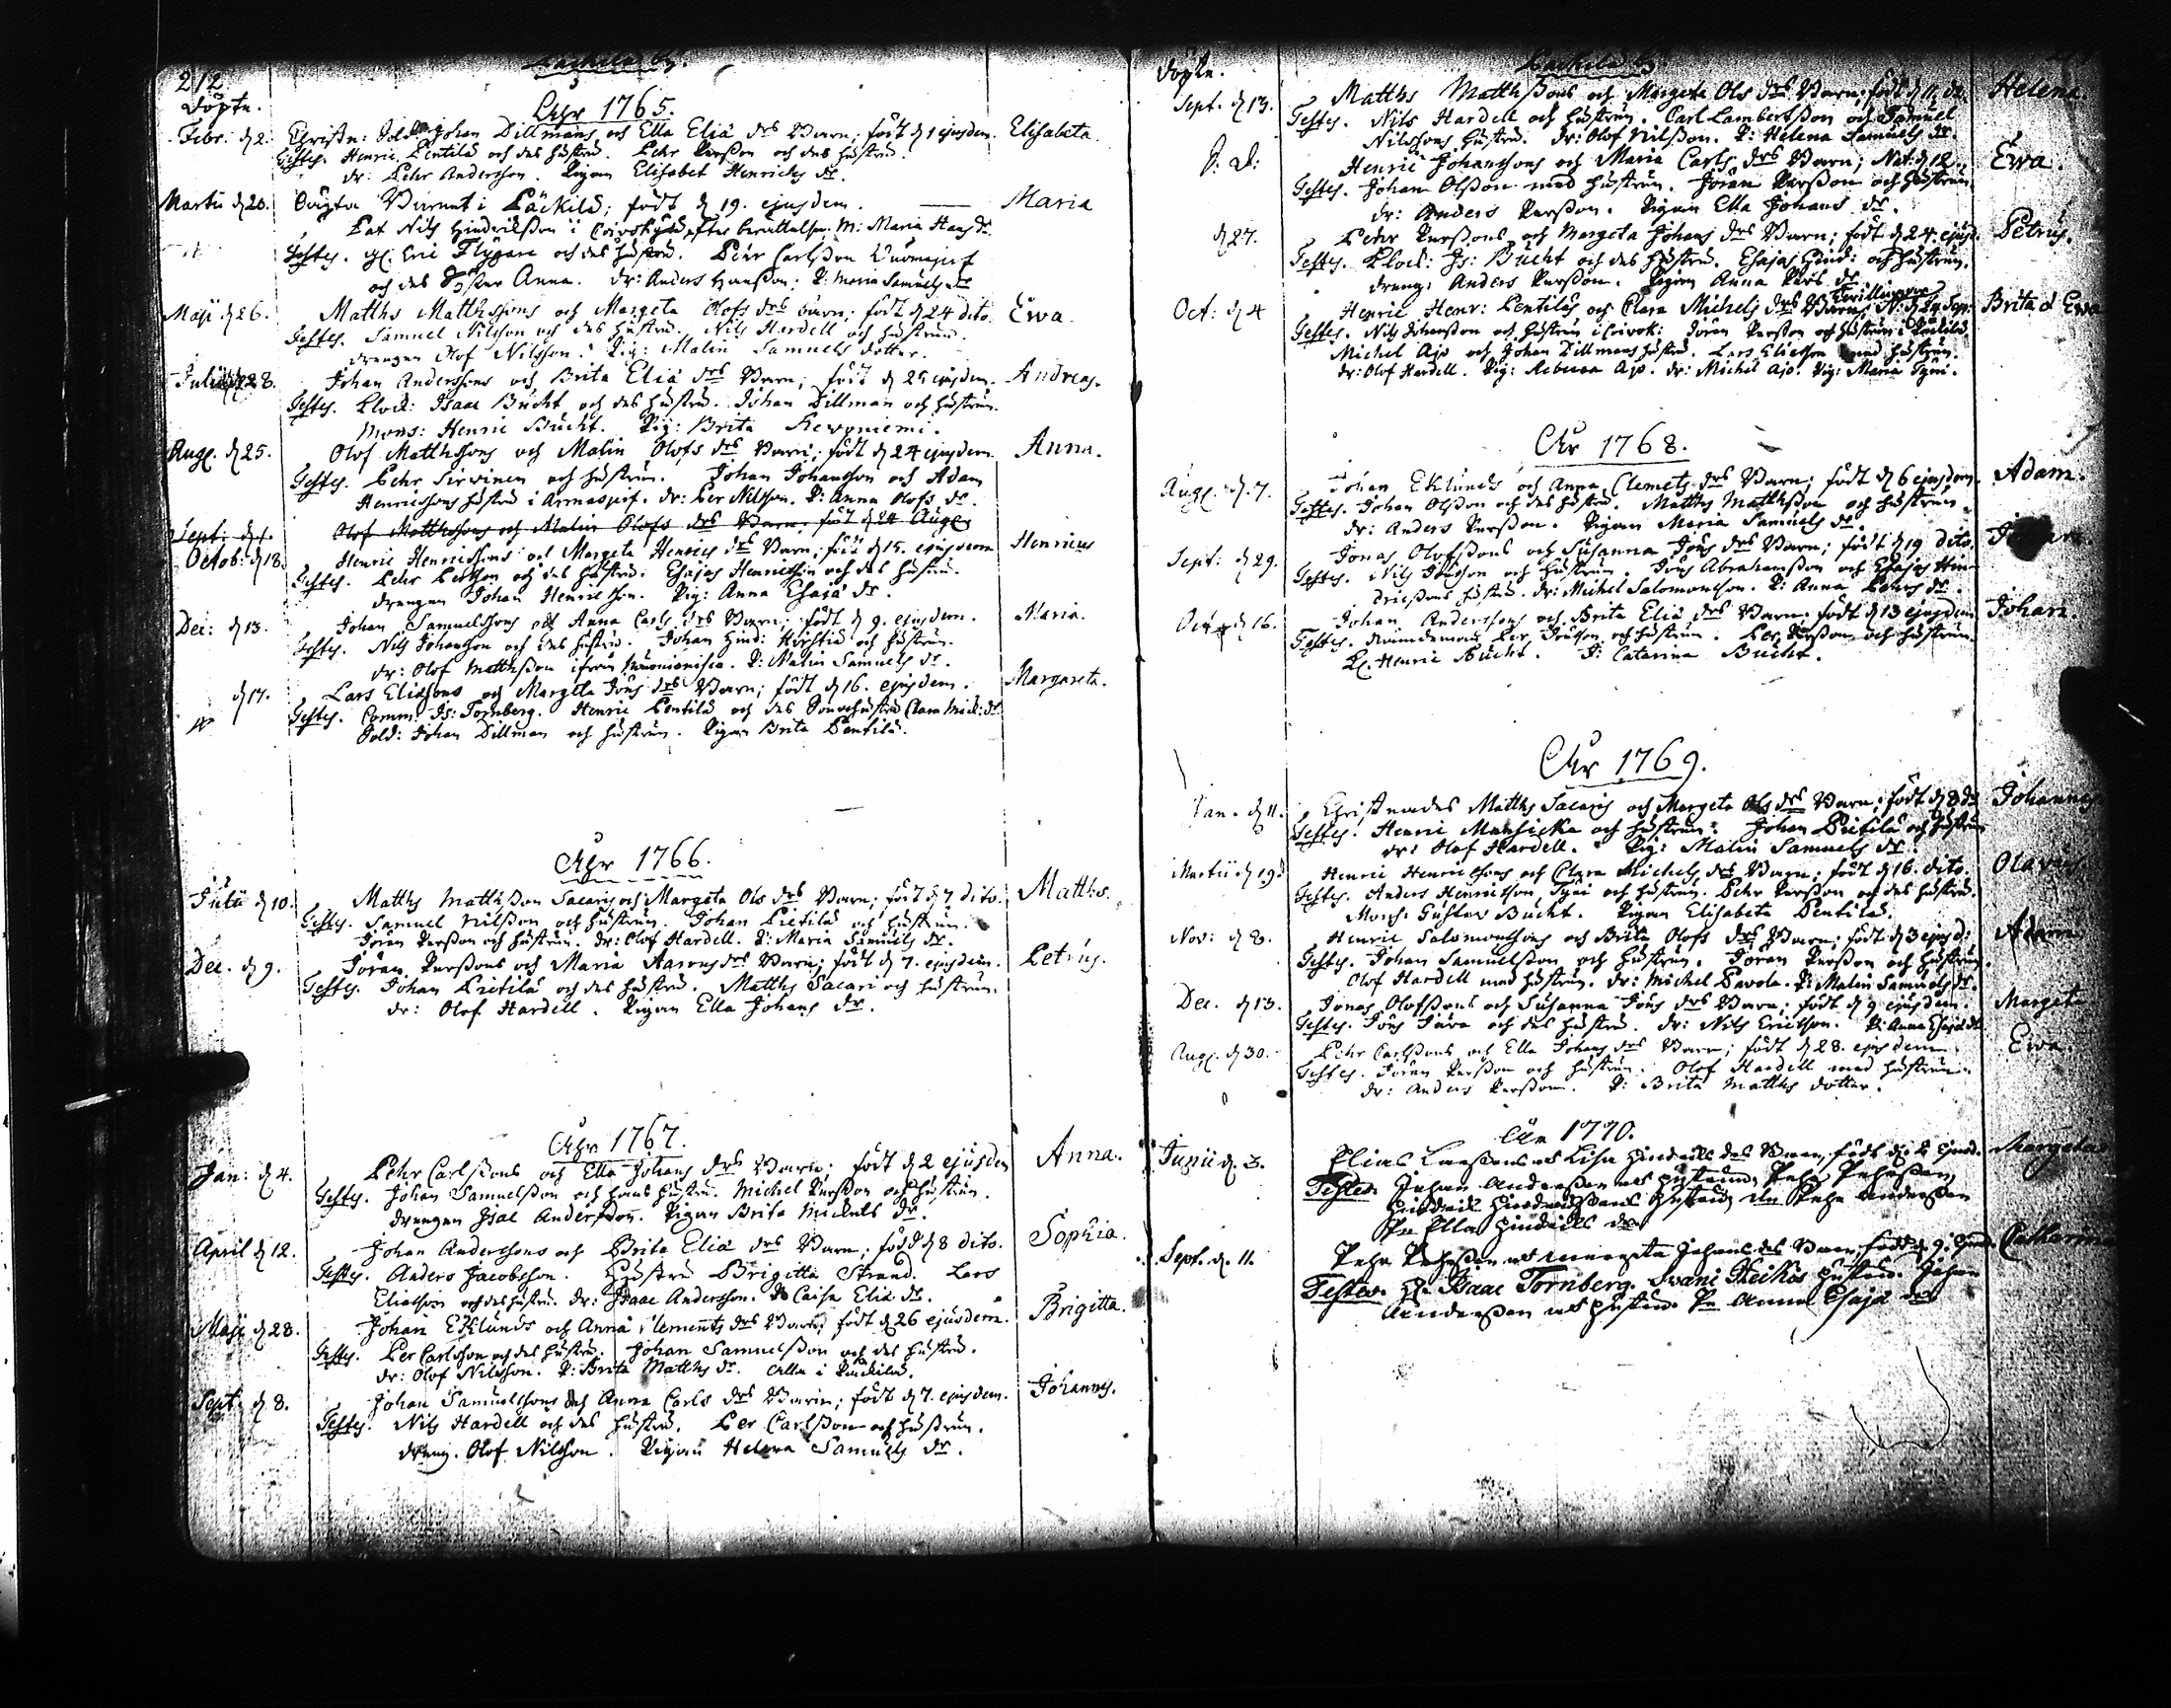 212
Döpte.
Åhr 1765.
Febr: d 2. Christn: Sold: Johan Dillmans och Ella Eliæ drs Barn; född d 1 ejusdem. Elisabeta.
Testes. Henric Pentilä och des hustru. Pehr Persson och des hustru.
dr: Pehr Andersson. Pigan Elisabet Henrichs dr.
Martii d 20. Barnet i Päckilä; född d 19. ejusdem. Maria
Nils Hinderikson i M: Maria Hans dr
Testes. Eric Flygare och des hustru. Pehr Carlsson
och des Syster Anna. dr: Anders Hansson; P: Maria Samuels dr
Maji d 26. Matths Matthssons och Margeta Olofs drs barn; född d 24 dito. Ewa.
Testes. Samuel Nilsson och des hustru. Nils Hardell och hustrun.
drengen Olof Nilsson. Pig: Malin Samuels dotter.
Julii d 28. Johan Anderssons och Brita Eliæ drs Barn; född d 25 ejusdem. Andreas.
Testes. Klock: Isaac Bucht och des hustru. Johan Dillman och hustrun.
Mons: Henric Bucht. Pig: Brita
Aug. d 25. Olof Matthssons och Malin Olofs drs Barn; född d 24 ejusdem. Anna.
Testes. Pehr Sirvinen och hustrun. Johan Johansson och Adam
Henricssons hustru i Armasjerf. dr: Per Nilsson. P: Anna Olofs dr.
Sept: d 1. Olof Matthssons och Malin Olofs drs Barn. född d 24 Aug.
Octob: d 18. Henric Henricssons och Margeta Henrics drs Barn; född d 15. ejusdem Henricus
Testes. Pehr Persson och des hustru. Esajas Henricsson och des hustru.
drengen Johan Henricsson. Pig: Anna Esajæ dr.
Dec: d 13. Johan Samuelssons och Anna Carls drs Barn; född d 9. ejusdem. Maria.
Testes. Nils Johansson och des hustru. Johan Hind: och hustrun.
dr: Olof Matthsson ifrån Muonionisca. P: Malin Samuels dr.
d 17. Lars Eliessons och Margeta Jöns drs Barn; född d 16. ejusdem. Margareta.
Testes. Comm: Is: Tornberg. Henric Pentilä och des Sonehustru Clara Mick: dr
Sold: Johan Dillman och hustrun. Pigan Brita Pentilä.
Åhr 1766.
Julii d 10. Matths Matthsson Sacaris och Margeta Ols drs Barn; född d 7 dito. Matths.
Testes. Samuel Nilsson och hustrun. Johan Pietilä och hustrun.
Jöran Persson och hustrun. dr: Olof Hardell. P: Maria Samuels dr.
Dec. d 9. Jöran Perssons och Maria Aarons drs Barn; född d 7. ejusdem. Petrus.
Testes. Johan Pietilä och des hustru. Matths Sacari och hustrun.
dr: Olof Hardell. Pigan Ella Johans dr.
Åhr 1767.
Jan: d 4. Pehr Carlssons och Ella Johans drs Barn; född d 2 ejusdem Anna.
Testes. Johan Samuelsson och hans hustru. Michel Persson och hustrun.
drengen Isac Andersson. Pigan Brita Mickels dr.
April d 12. Johan Anderssons och Brita Eliæ drs Barn; född d 8 dito. Sophia.
Testes. Anders Jacobsson. Hustru Brigitta Strand. Lars
Eliesson och des hustru. dr: Isaac Andersson. P: Caisa Eliæ dr.
Maji d 28. Johan Eklunds och Anna Clements drs Barn; född d 26 ejusdem. Brigitta.
Testes. Per Carlsson och des hustru. Johan Samuelsson och des hustru.
dr: Olof Nilsson. P: Brita Matths dr. Alla i Päckilä.
Sept: d 8. Johan Samuelssons och Anna Carls drs Barn; född d 7. ejusdem. Johannes.
Testes. Nils Hardell och des hustru. Per Carlsson och hustrun.
dreng. Olof Nilsson. Pigan Helena Samuels dr.
Döpte.
Sept. d 13. Matths Matthssons och Margeta Ols drs Barn; född d 11. do. Helena.
Testes. Nils Hardell och hustrun. Carl Lambertsson och Samuel
Nilssons hustru. dr: Olof Nilsson. P: Helena Samuels dr.
Henric Johanssons och Maria Carls drs Barn; Nat: d 12. Ewa.
Testes. Johan Olsson med hustrun. Jöran Persson och hustrun
dr: Anders Persson. Pigan Ella Johans dr.
d 27. Pehr Perssons och Margeta Johans drs Barn; född d 24. ejusd. Petrus.
Testes. Klock: Is: Bucht och des hustru. Esajas Hind: och hustrun.
dreng: Anders Persson. Pigan Anna Pers dr.
Oct: d 4 Henric Henr: Pentiläs och Clara Michels drs Barn, Brita & Ewa
Testes. Nils Johansson och hustrun i Jöran Persson och hustrun i Päckilä.
Michel Ajo och Johan Dillmans hustru. Lars Eliesson med hustrun.
dr: Olof Hardell. Pig: Rebecca Ajo. dr: Michel Ajo. Pig: Maria
Åhr 1768.
Aug. d. 7. Johan Eklunds och Anna Clemets drs Barn; född d 6 ejusdem. Adam.
Testes. Johan Olsson och des hustru. Matths Matthsson och hustrun.
dr: Anders Persson. Pigan Maria Samuels dr.
Sept: d 29. Jonas Olofssons och Susanna Jöns drs Barn; född d 19 dito.
Testes. Nils Jönsson och hustrun. Jöns Abrahamsson och Esajas
hustru. dr: Michel Salomonsson. P: Anna dr.
Oct d 16. Johan Anderssons och Brita Eliæ drs Barn; född d 13 ejusdem Johan.
Testes. Nämdeman Per Jönsson och hustrun. Per Persson och hustrun.
Henric Bucht. J: Catarina Bucht.
Åhr 1769.
Jan. d 11. Christnades Matths Sacaris och Margeta Ols drs Barn; född d 8 do Johannes
Testes. Henric Mansicka och hustrun. Johan Pietilä och hustrun
dr: Olof Hardell. Pig: Malin Samuels dr.
Martii d 19. Henric Henricssons och Clara Michels drs Barn; född d 16. dito. Olavus
Testes. Anders Henricsson och hustrun. Pehr Persson och des hustru.
Mons: Gustav Bucht. Pigan Elisabeta Pentilä.
Nov: d 8. Henric Salomonssons och Brita Olofs drs Barn; född d 3 ejusd: Adam
Testes. Johan Samuelsson och hustrun. Jöran Persson och hustrun.
Olof Hardell med hustrun. dr: Michel Pavola. P: Malin Samuels dr.
Dec. d 13. Jonas Olofssons och Susanna Jöns drs Barn; född d 9 ejusdem. Margeta
Testes. Jöns och des hustru. dr: Nils Ericsson. P: Anna Esajæ dr.
Aug. d 30. Pehr Carlssons och Ella Johans drs Barn; född d 28. ejusdem Ewa.
Testes. Jöran Persson och hustrun. Olof Hardell med hustrun.
dr: Anders Persson. P: Brita Matths dotter.
Åhr 1770.
Junii d. 3. Elias Larssons och Lisa Hindriks drs Barn, född d. 2 ejusd. Margeta
Testes. Johan Andersson och hustrun, Pehr Pehrsson,
Hindrik Hindrikssons hustru, Dr Pehr Andersson
Pn Ella Hindriks dr
Sept. d. 11. Pehr Pehrsson och Margeta Johans drs Barn, född d. 9. Catharina
Testes. Isaac Tornberg. hustru. Johan
Andersson och hustrun. Pn Anna Esajæ dr